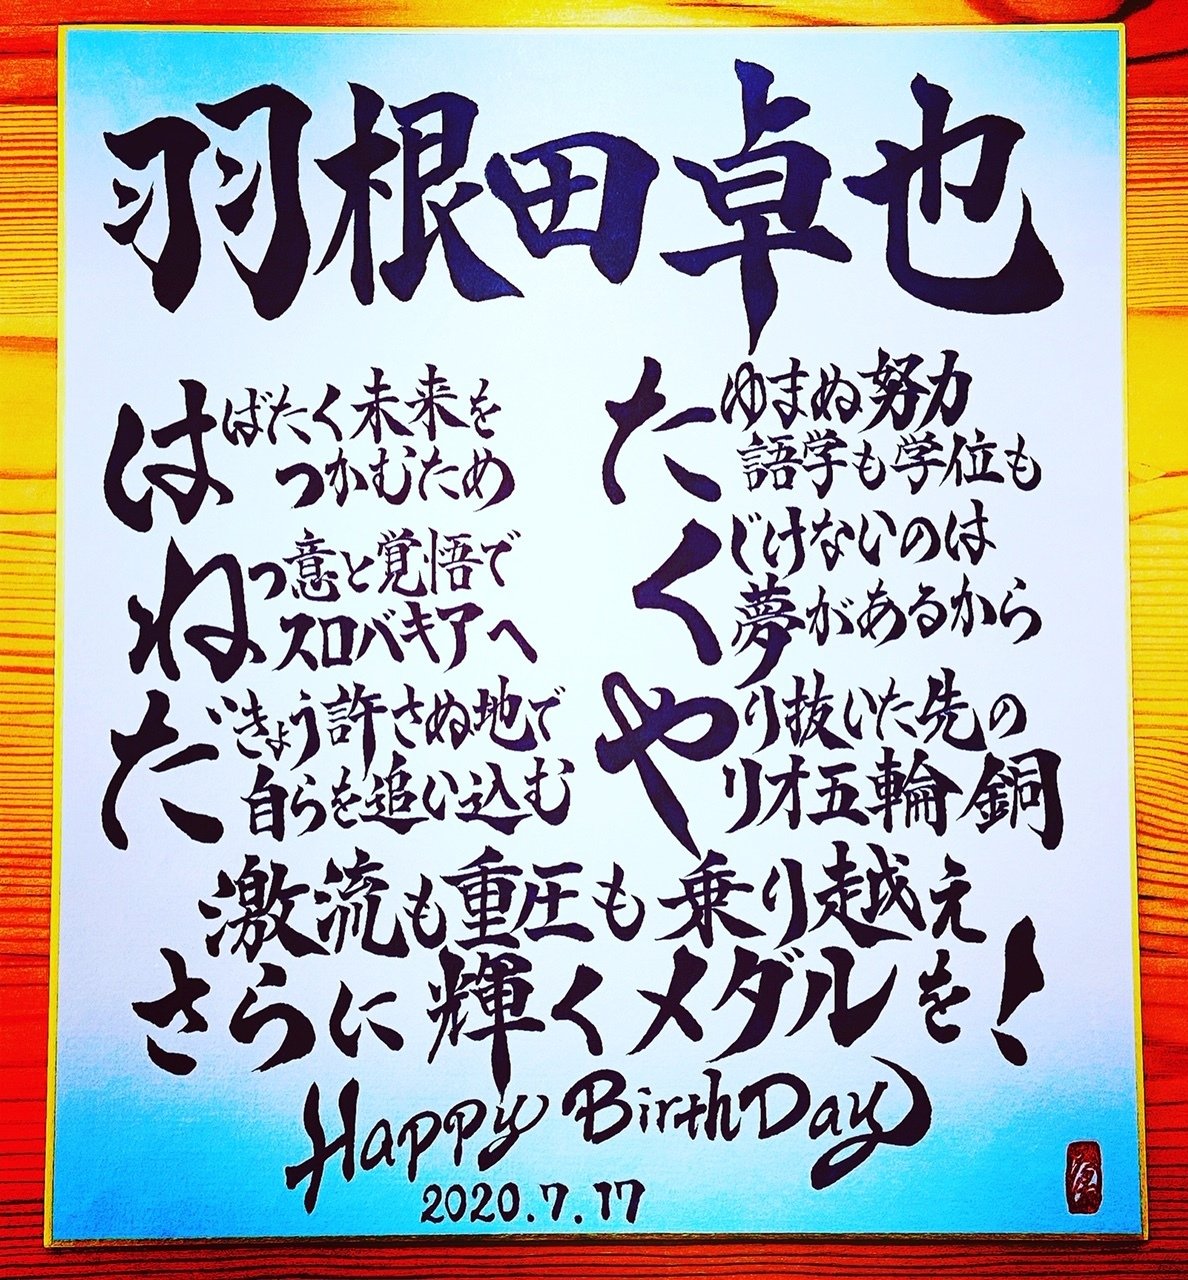 羽根田卓也
はばたく未来を
つかむため
ねっ意と覚悟で
スロバキアへ
だきょう許さぬ地で
自らを追い込む
たゆまぬ努力
語学も学位も
くじけないのは
夢があるから
やり抜いた先の
リオ五輪銅
激流も重圧も乗り越え
さらに輝くメダルを!
Happy BirthDay
2020.7.17